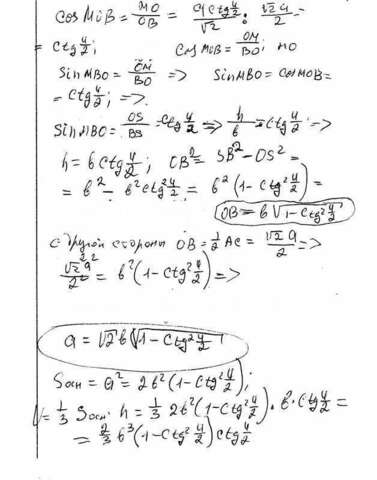 cos MOB = MO/OB = a ctg φ/2 / √2 : √2 a/2 =
= ctg φ/2; cos MOB = OM/BO; но
sin MBO = OM/BO => sin MBO = cos MOB =
= ctg φ/2; =>.
sin MBO = OS/BS = ctg φ/2 => h/b = ctg φ/2 =>
h = b ctg φ/2; OB² = SB² - OS² =
= b² - b² ctg² φ/2 = b² (1 - ctg² φ/2) =
OB = b √1 - ctg² φ/2
с другой стороны OB = 1/2 AC = √2 a/2 =>
√2² a²/2² = b² (1 - ctg² φ/2) =>
a = √2 b √1 - ctg² φ/2
Sосн = a² = 2b² (1 - ctg² φ/2);
V = 1/3 Sосн. h = 1/3 2b² (1 - ctg² φ/2) · b · ctg φ/2 =
= 2/3 b³ (1 - ctg² φ/2) ctg φ/2